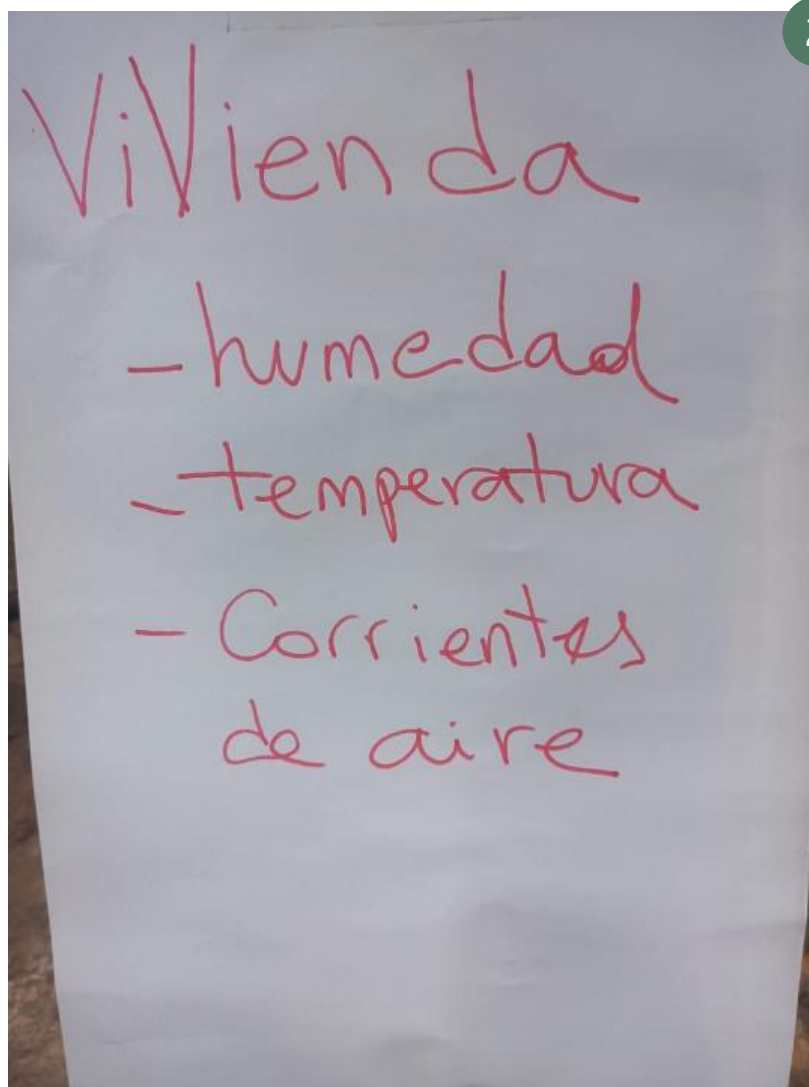 ViVienda
- humedad
- temperatura
- Corrientes
de aire